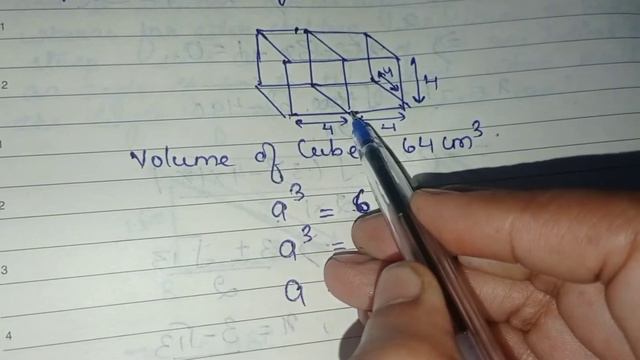 4
4
4 4
Volume of Cube 64 cm³.
a³ = 6
a³ =
a